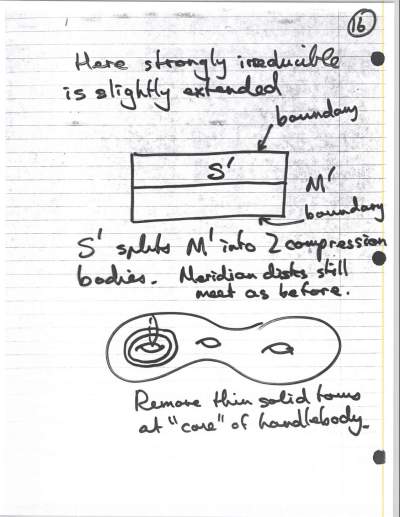 16
Here strongly irreducible
is slightly extended
boundary
S'
M'
boundary
S' splits M' into 2 compression
bodies. Meridian disks still
meet as before.
Remove thin solid torus
at "core" of handlebody.